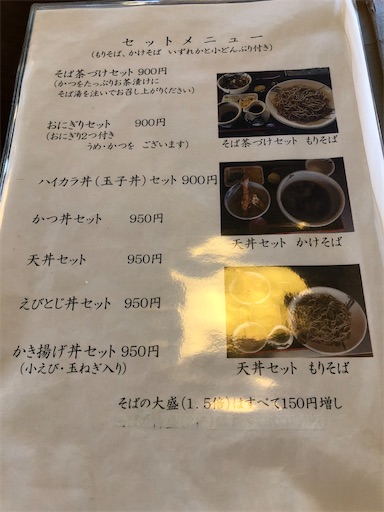 セットメニュー
(もりそば、かけそば いずれかと小どんぶり付き)
そば茶づけセット 900円
(かつをたっぷりお茶漬けに
そば湯を注いでお召し上がりください)
おにぎりセット 900円
(おにぎり2つ付き
うめ・かつを ございます)
そば茶づけセット もりそば
ハイカラ丼(玉子丼)セット 900円
かつ丼セット 950円
天丼セット かけそば
天丼セット 950円
えびとじ丼セット 950円
かき揚げ丼セット 950円
(小えび・玉ねぎ入り)
天丼セット もりそば
そばの大盛(1.5倍)はすべて150円増し